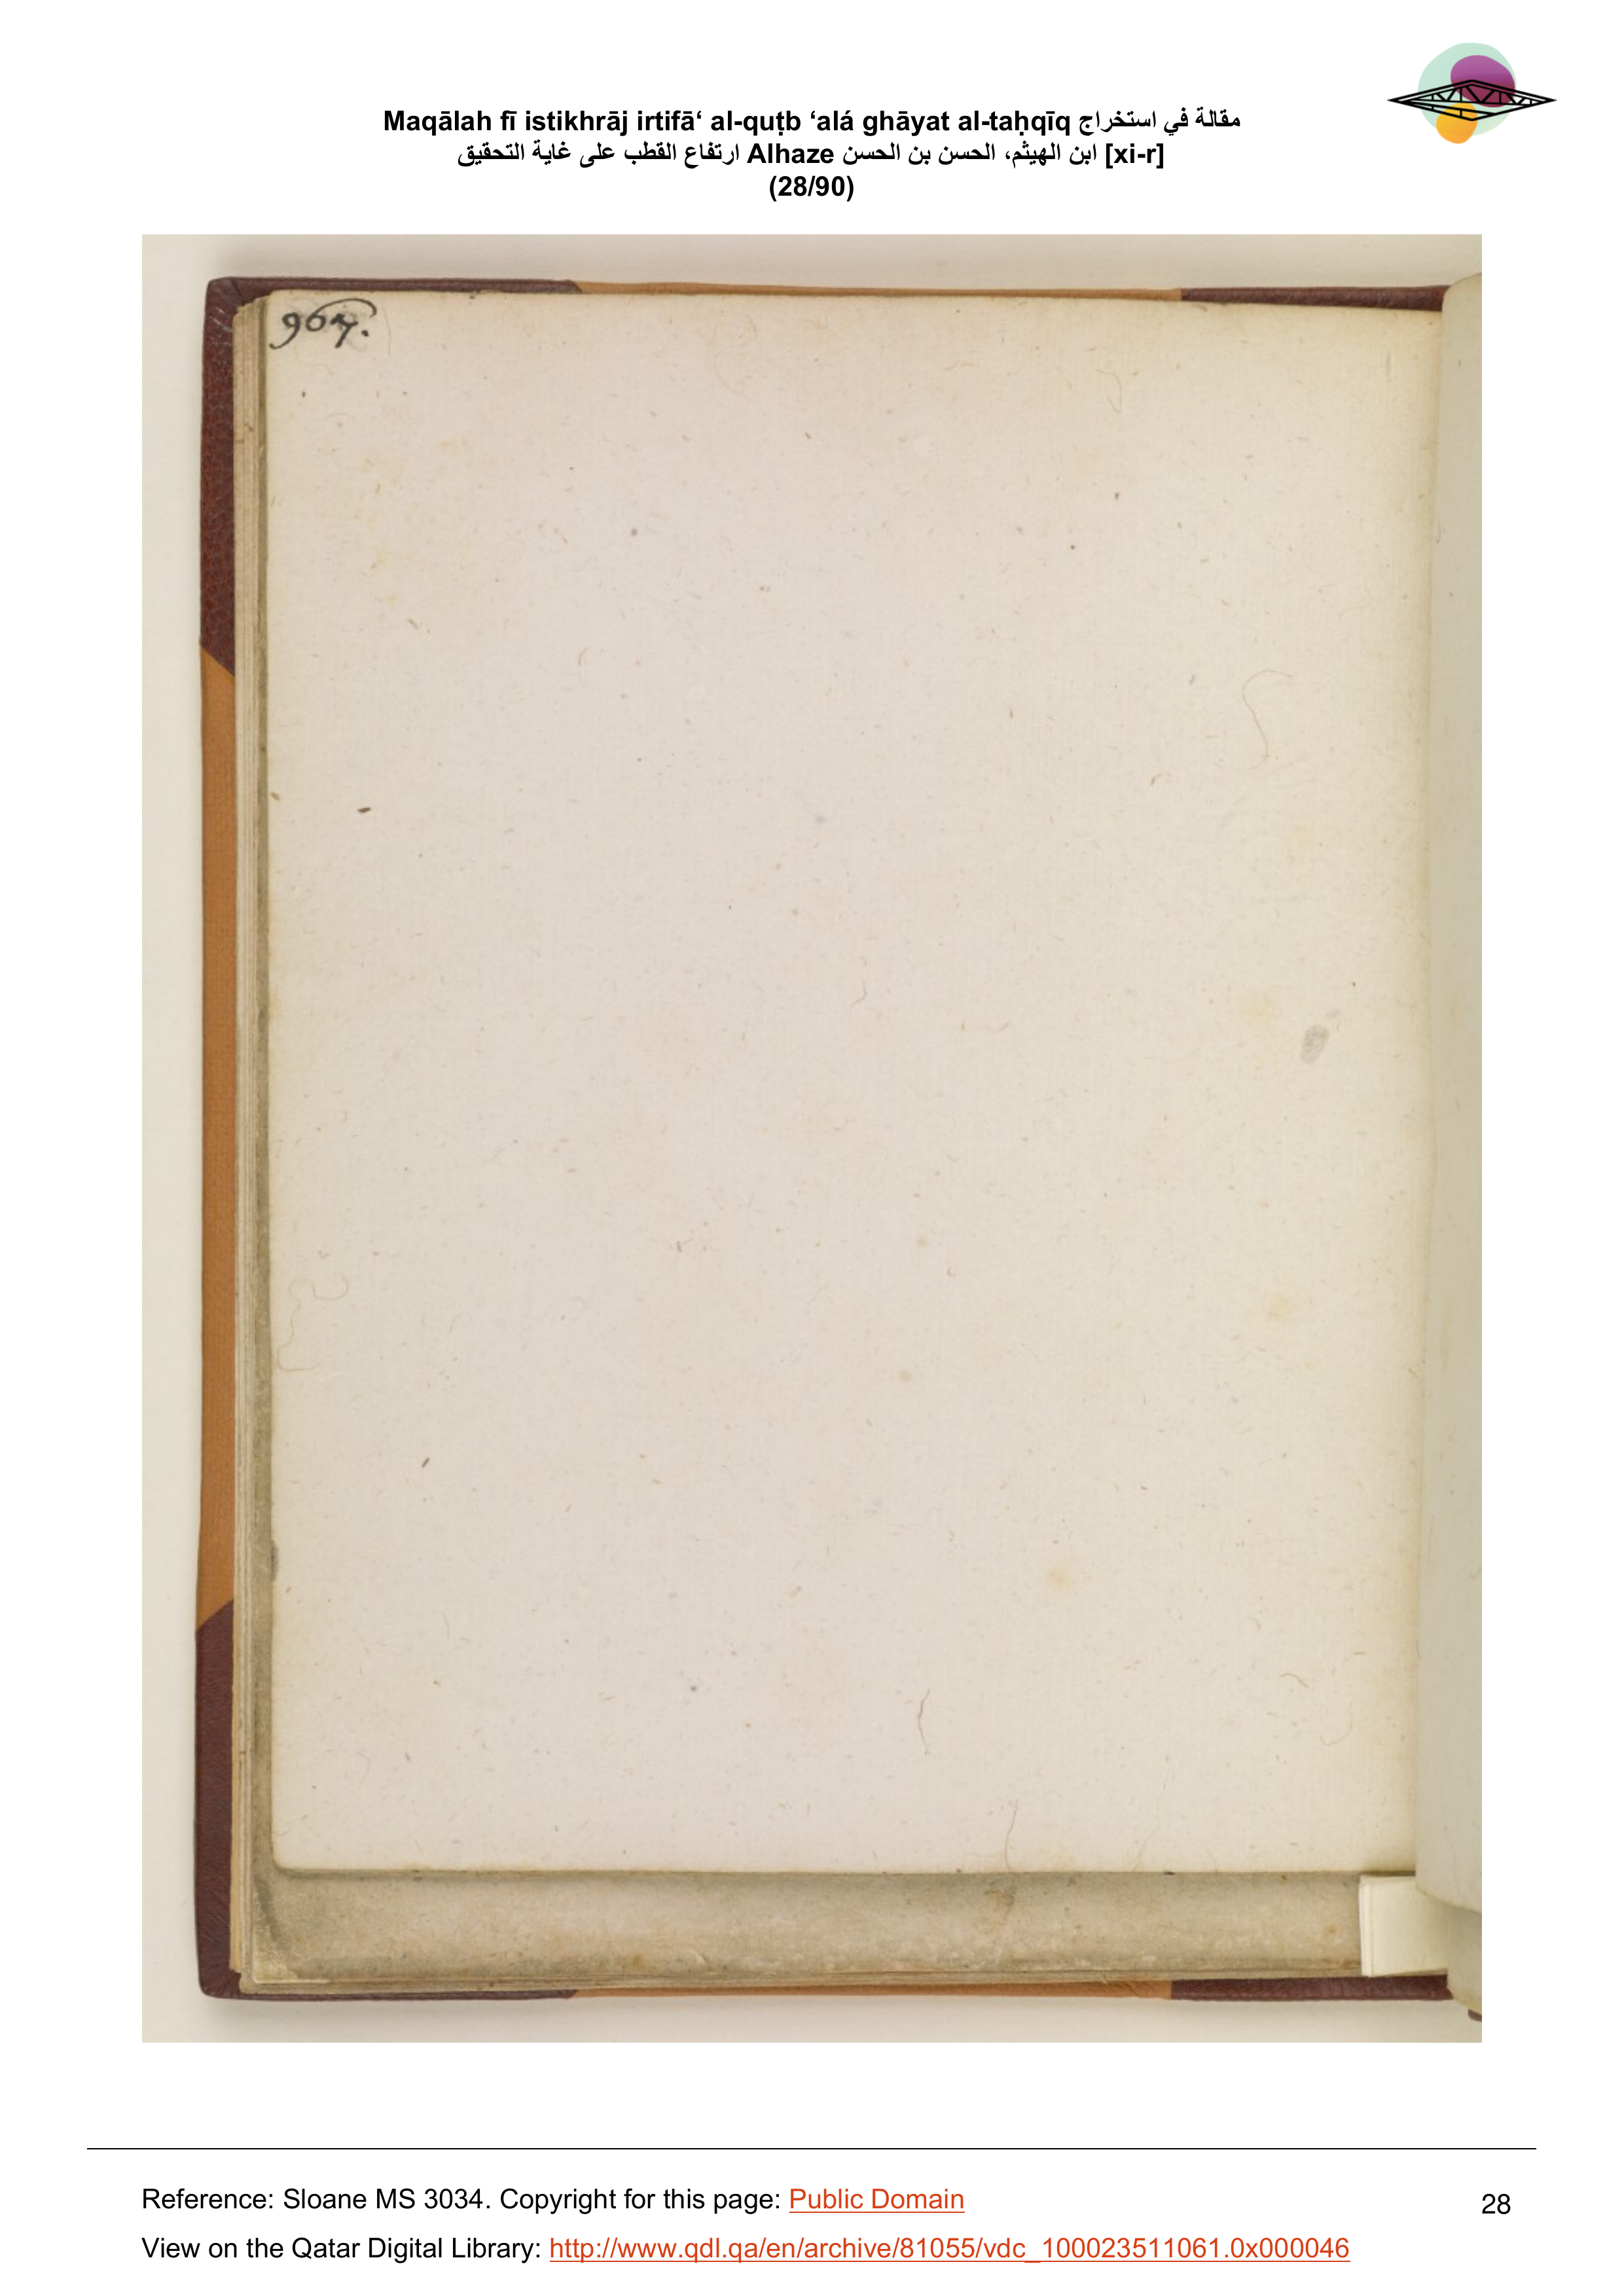 Maqālah fī istikhrāj irtifā‘ al-quṭb ‘alá ghāyat al-taḥqīq مقالة في استخراج
ارتفاع القطب على غاية التحقيق Alhaze ابن الهيثم، الحسن بن الحسن [xi-r]
(28/90)
967.
Reference: Sloane MS 3034. Copyright for this page: Public Domain
28
View on the Qatar Digital Library: http://www.qdl.qa/en/archive/81055/vdc_100023511061.0x000046